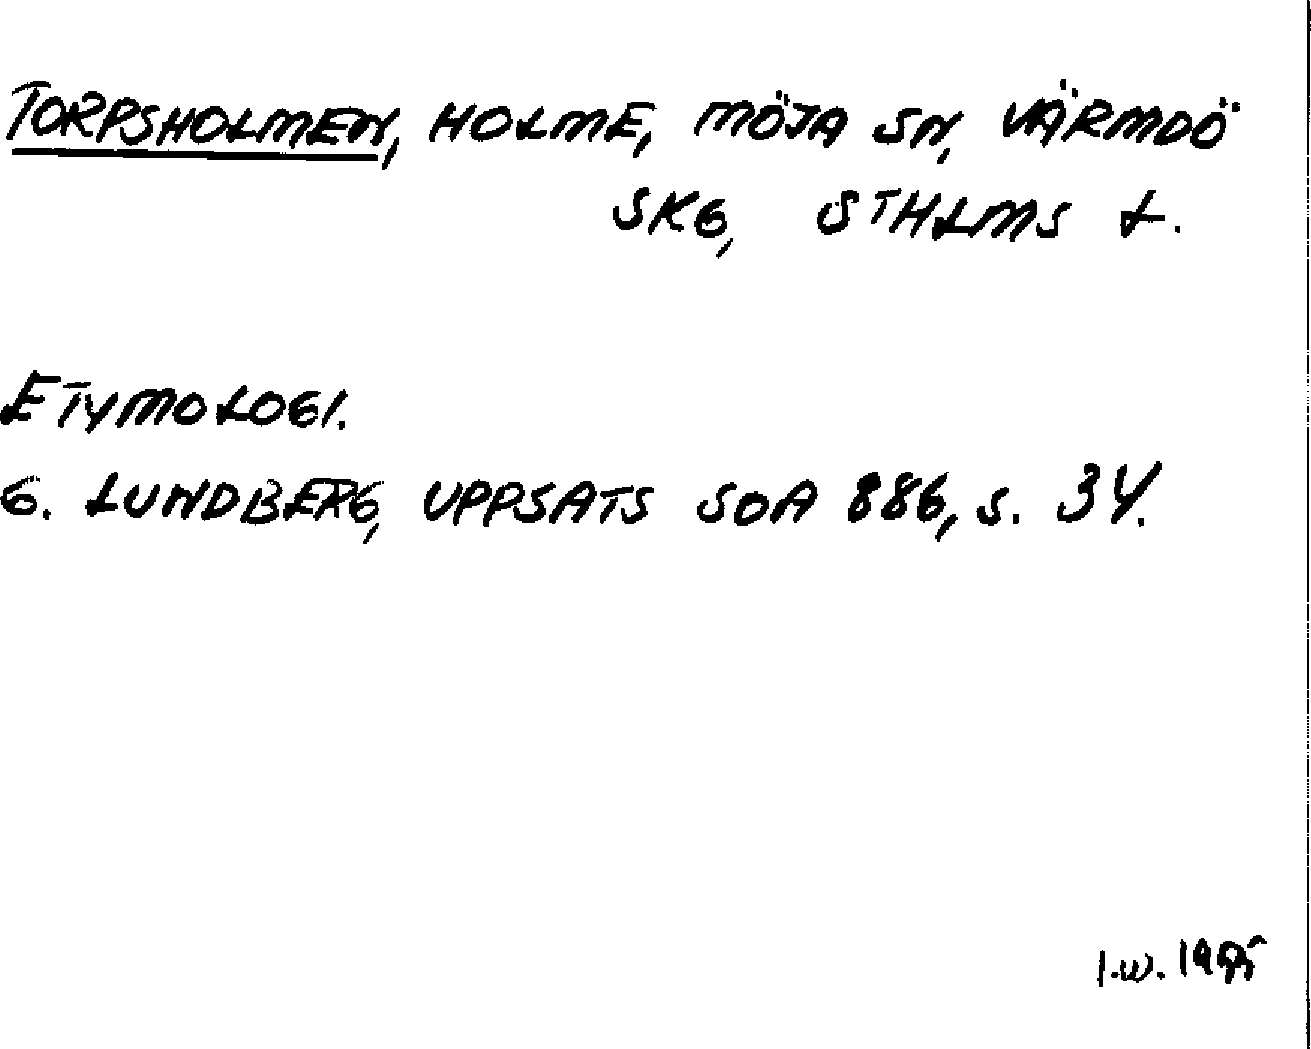 TORPSHOLMEN, HOLME, MÖJA SN, VÄRMDÖ
SKG, STHLMS L.
ETYMOLOGI.
G. LUNDBERG, UPPSATS SOA 886, S. 34.
I.W.